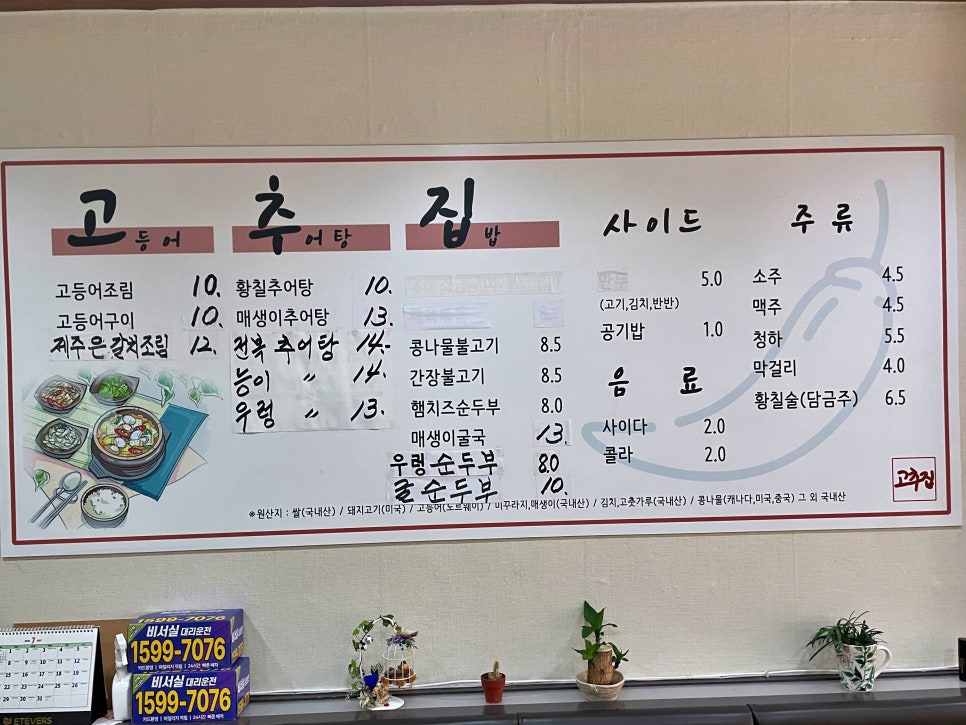 고등어
고등어조림 10.
고등어구이 10.
제주은갈치조림 12.
추어탕
황칠추어탕 10.
매생이추어탕 13.
전복 추어탕 14.-
능이 〃 14.
우렁 〃 13.
집밥
콩나물불고기 8.5
간장불고기 8.5
햄치즈순두부 8.0
매생이굴국 13.
우렁순두부 8.0
굴순두부 10.
사이드
만두 5.0
(고기,김치,반반)
공기밥 1.0
음 료
사이다 2.0
콜라 2.0
주 류
소주 4.5
맥주 4.5
청하 5.5
막걸리 4.0
황칠술(담금주) 6.5
고추집
※원산지 : 쌀(국내산) / 돼지고기(미국) / 고등어(노르웨이) / 미꾸라지,매생이(국내산) / 김치,고춧가루(국내산) / 콩나물(캐나다,미국,중국) 그 외 국내산
비서실 대리운전
1599-7076
비서실 대리운전
1599-7076
7
ETEVERS